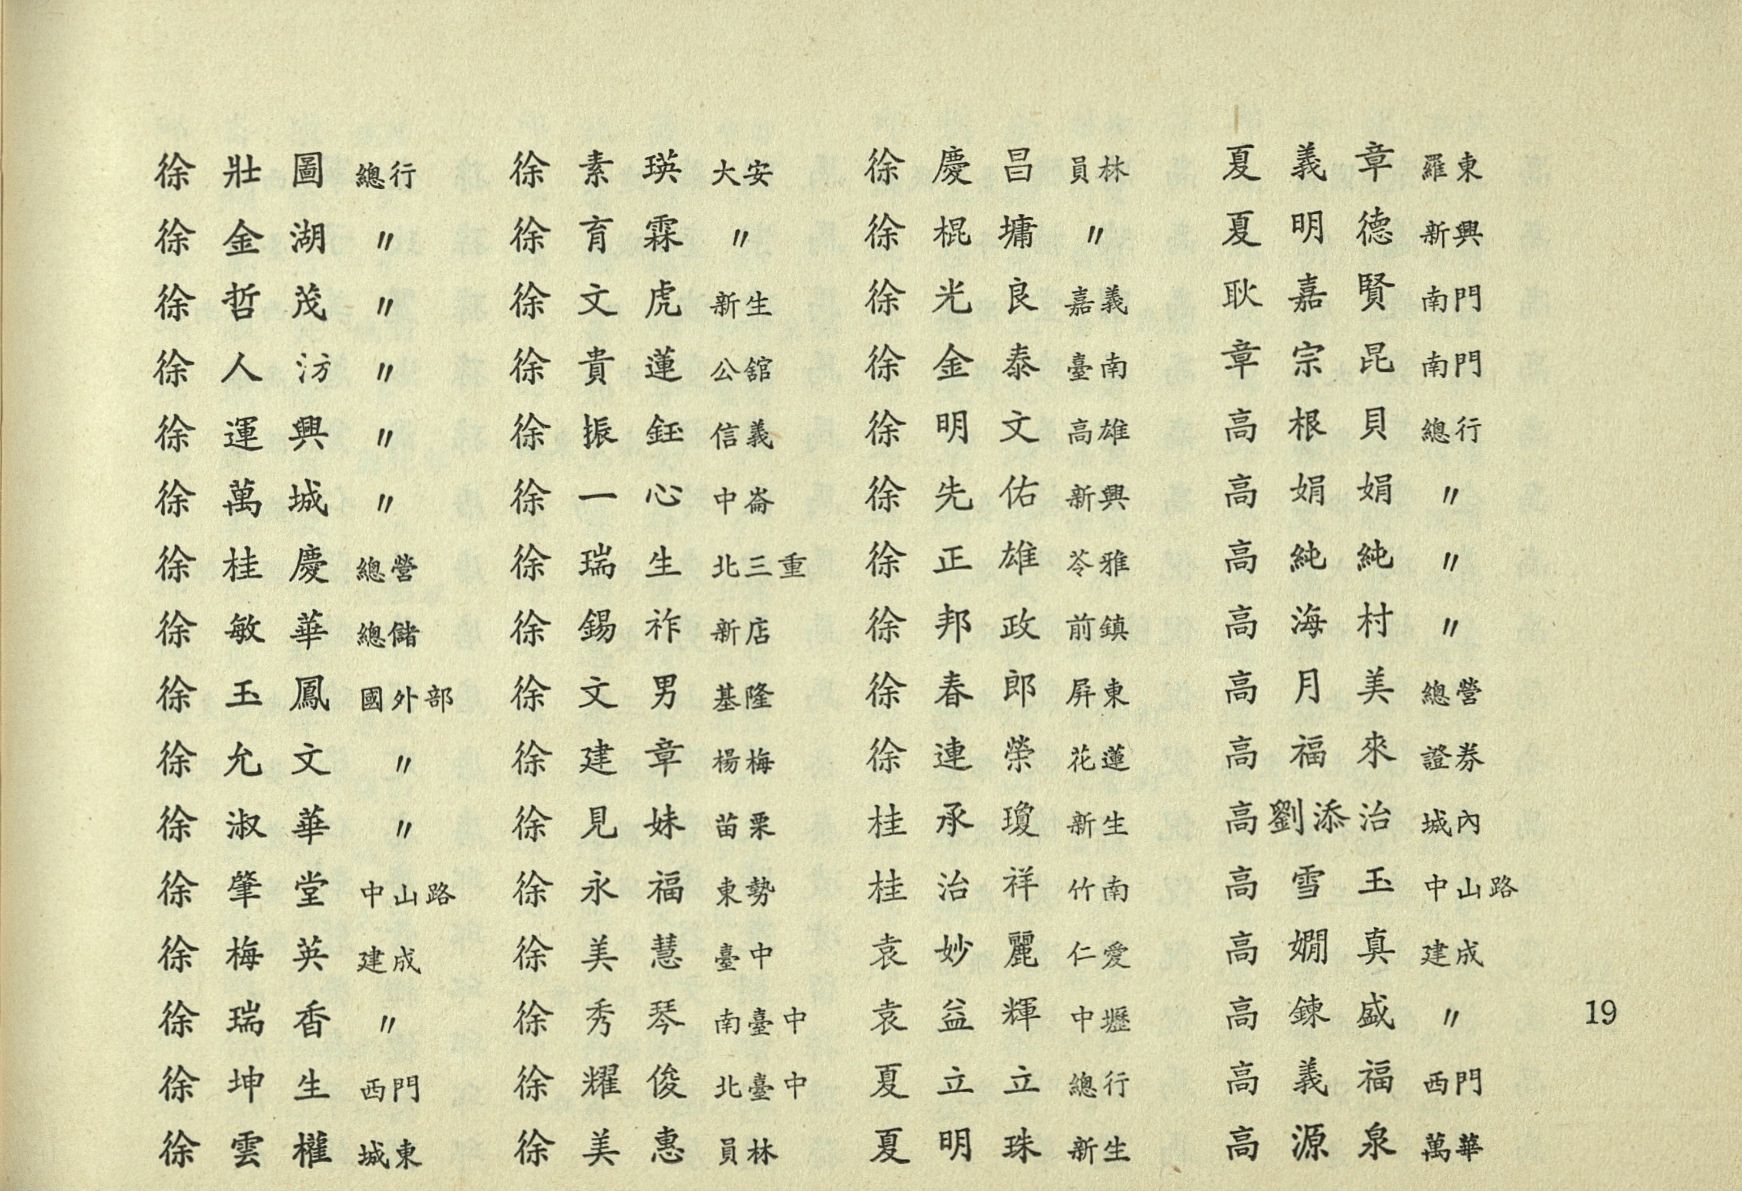 徐壯圖 總行
徐金湖 〃
徐哲茂 〃
徐人汸 〃
徐運興 〃
徐萬城 〃
徐桂慶 總營
徐敏華 總儲
徐玉鳳 國外部
徐允文 〃
徐淑華 〃
徐肇堂 中山路
徐梅英 建成
徐瑞香 〃
徐坤生 西門
徐雲權 城東
徐素瑛 大安
徐育霖 〃
徐文虎 新生
徐貴蓮 公舘
徐振鈺 信義
徐一心 中崙
徐瑞生 北三重
徐錫祚 新店
徐文男 基隆
徐建章 楊梅
徐見妹 苗栗
徐永福 東勢
徐美慧 臺中
徐秀琴 南臺中
徐耀俊 北臺中
徐美惠 員林
徐慶昌 員林
徐棍墉 〃
徐光良 嘉義
徐金泰 臺南
徐明文 高雄
徐先佑 新興
徐正雄 苓雅
徐邦政 前鎮
徐春郎 屏東
徐連榮 花蓮
桂承瓊 新生
桂治祥 竹南
袁妙麗 仁愛
袁益輝 中壢
夏立立 總行
夏明珠 新生
夏義章 羅東
夏明德 新興
耿嘉賢 南門
章宗昆 南門
高根貝 總行
高娟娟 〃
高純純 〃
高海村 〃
高月美 總營
高福來 證券
高劉添治 城內
高雪玉 中山路
高嫺真 建成
高鍊盛 〃
高義福 西門
高源泉 萬華
19